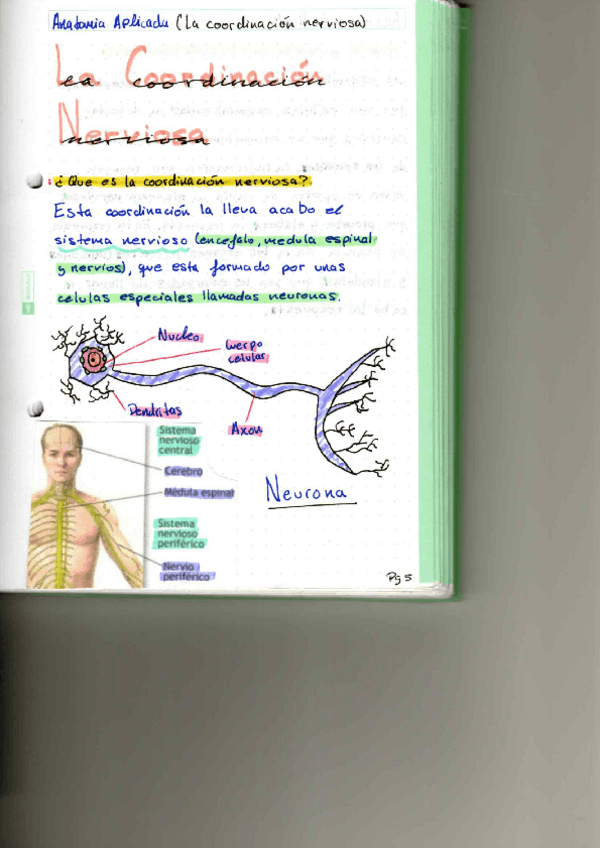 Anatomia Aplicada (La coordinación nerviosa)
La Coordinación
la coordinación
Nerviosa
nerviosa
¿Que es la coordinación nerviosa?
Esta coordinación la lleva acabo el
sistema nervioso (encefalo, medula espinal
y nervios), que esta formado por unas
celulas especiales llamadas neuronas.
Nucleo
Cuerpo
celular
Dendritas
Axon
Neurona
Sistema
nervioso
central
Cerebro
Médula espinal
Sistema
nervioso
periférico
Nervio
periférico
Pg 5